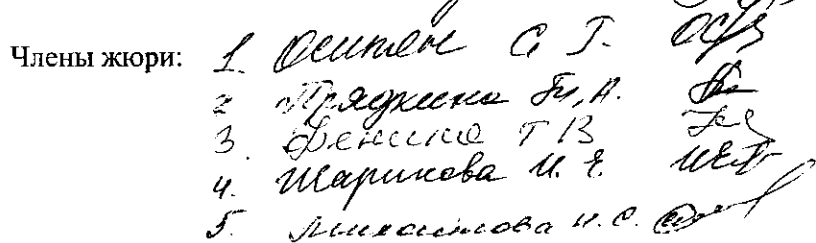 Члены жюри: 1. Осипян С. Г.
2 Прядкина Н. А.
3. Фенина Т В
4. Шарикова И. Е.
5. Михайлова И. С.